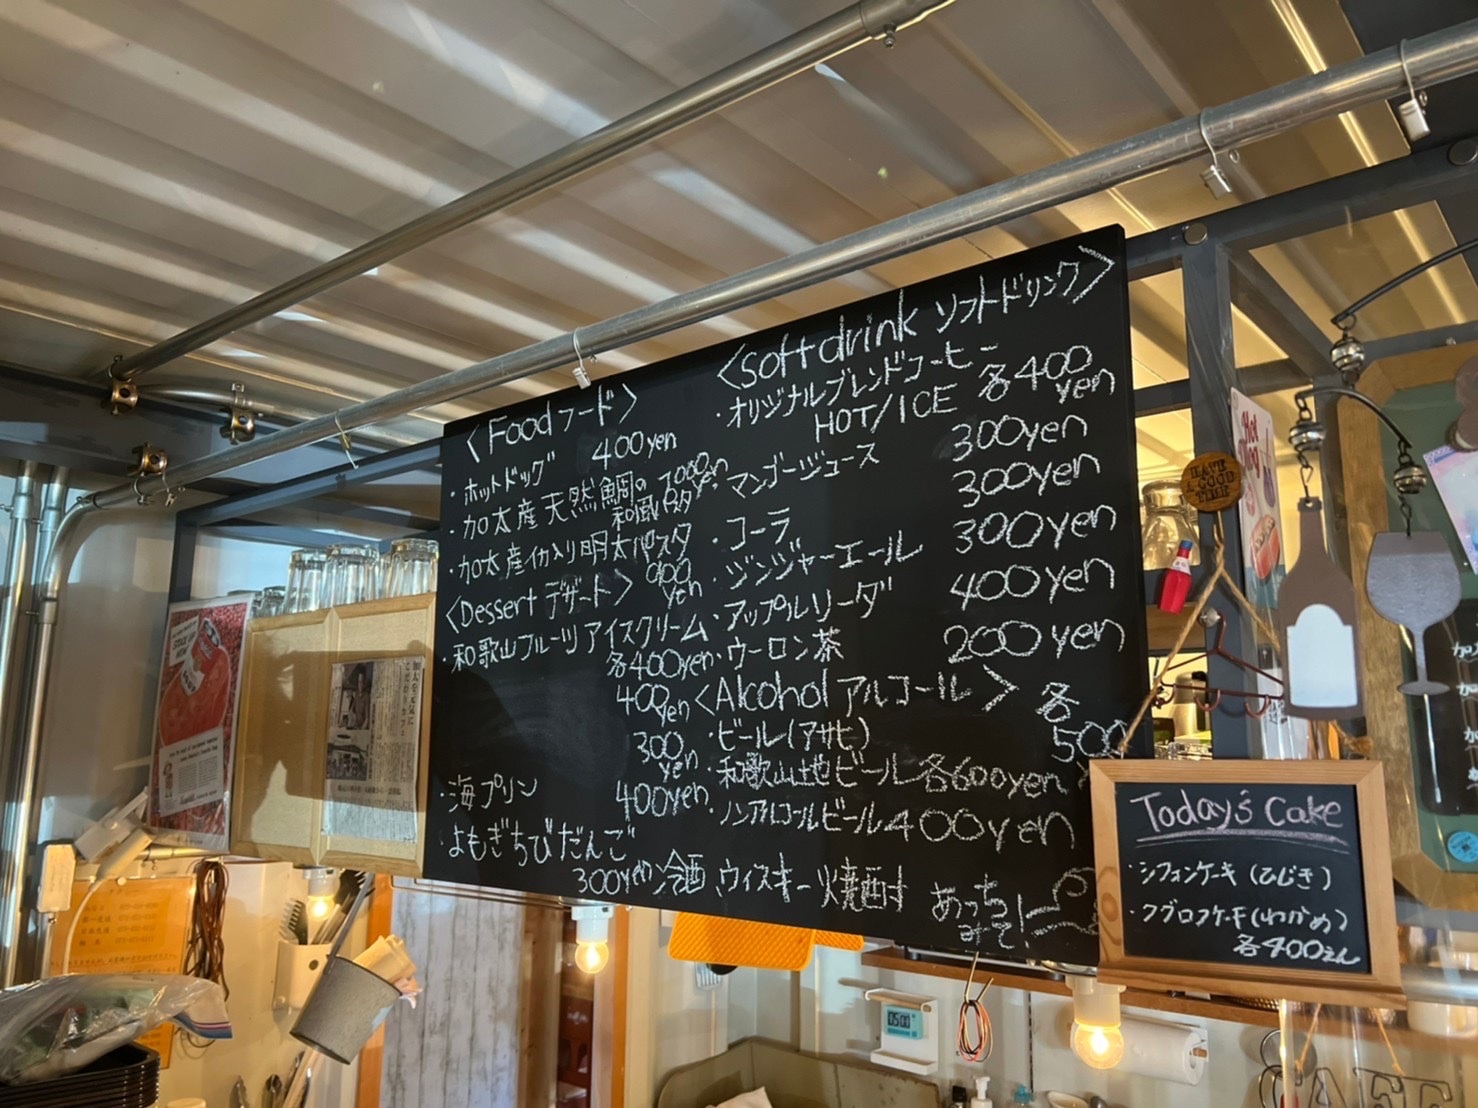 <Food フード>
・ホットドッグ 400yen
・加太産天然鯛の 1000yen
和風パスタ
・加太産イカ入り明太パスタ
900
yen
<Dessert デザート>
・和歌山フルーツアイスクリーム
各400yen
400yen
300
yen
・海プリン 400yen
・よもぎちびだんご
300yen
<Soft drink ソフトドリンク>
・オリジナルブレンドコーヒー
HOT/ICE 各400
yen
・マンゴージュース 300yen
300yen
・コーラ
・ジンジャーエール 300yen
・アップルソーダ 400yen
・ウーロン茶 200yen
<Alcohol アルコール> 各
・ビール(アサヒ) 500
・和歌山地ビール各600yen
・ノンアルコールビール400yen
冷酒、ウィスキー 焼酎
あっち
みて!
Today's Cake
・シフォンケーキ(ひじき)
(わかめ)
各400えん
HAVE
A GOOD
TIME
Hot
Dog
05:00
加太を元気に
こだわりカフェ
CAFE